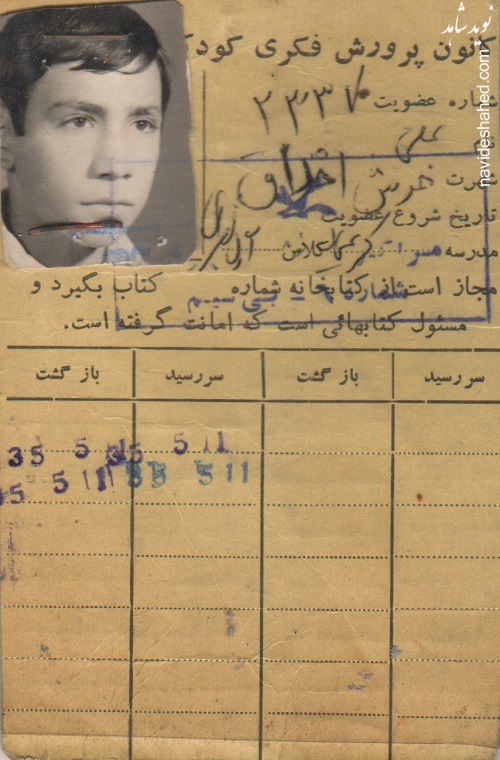 نوید شاهد
navideshahed.com
کانون پرورش فکری کودک
شماره عضویت ۲۳۳۷۰
نام علی
شهرت خوش اخلاق
تاریخ شروع عضویت
مدرسه کلاس
مجاز است از کتابخانه شماره کتاب بگیرد و
مسئول کتابهائی است که امانت گرفته است.
سررسید باز گشت سررسید باز گشت
35 5 11 35 5 11
35 5 11 35 5 11